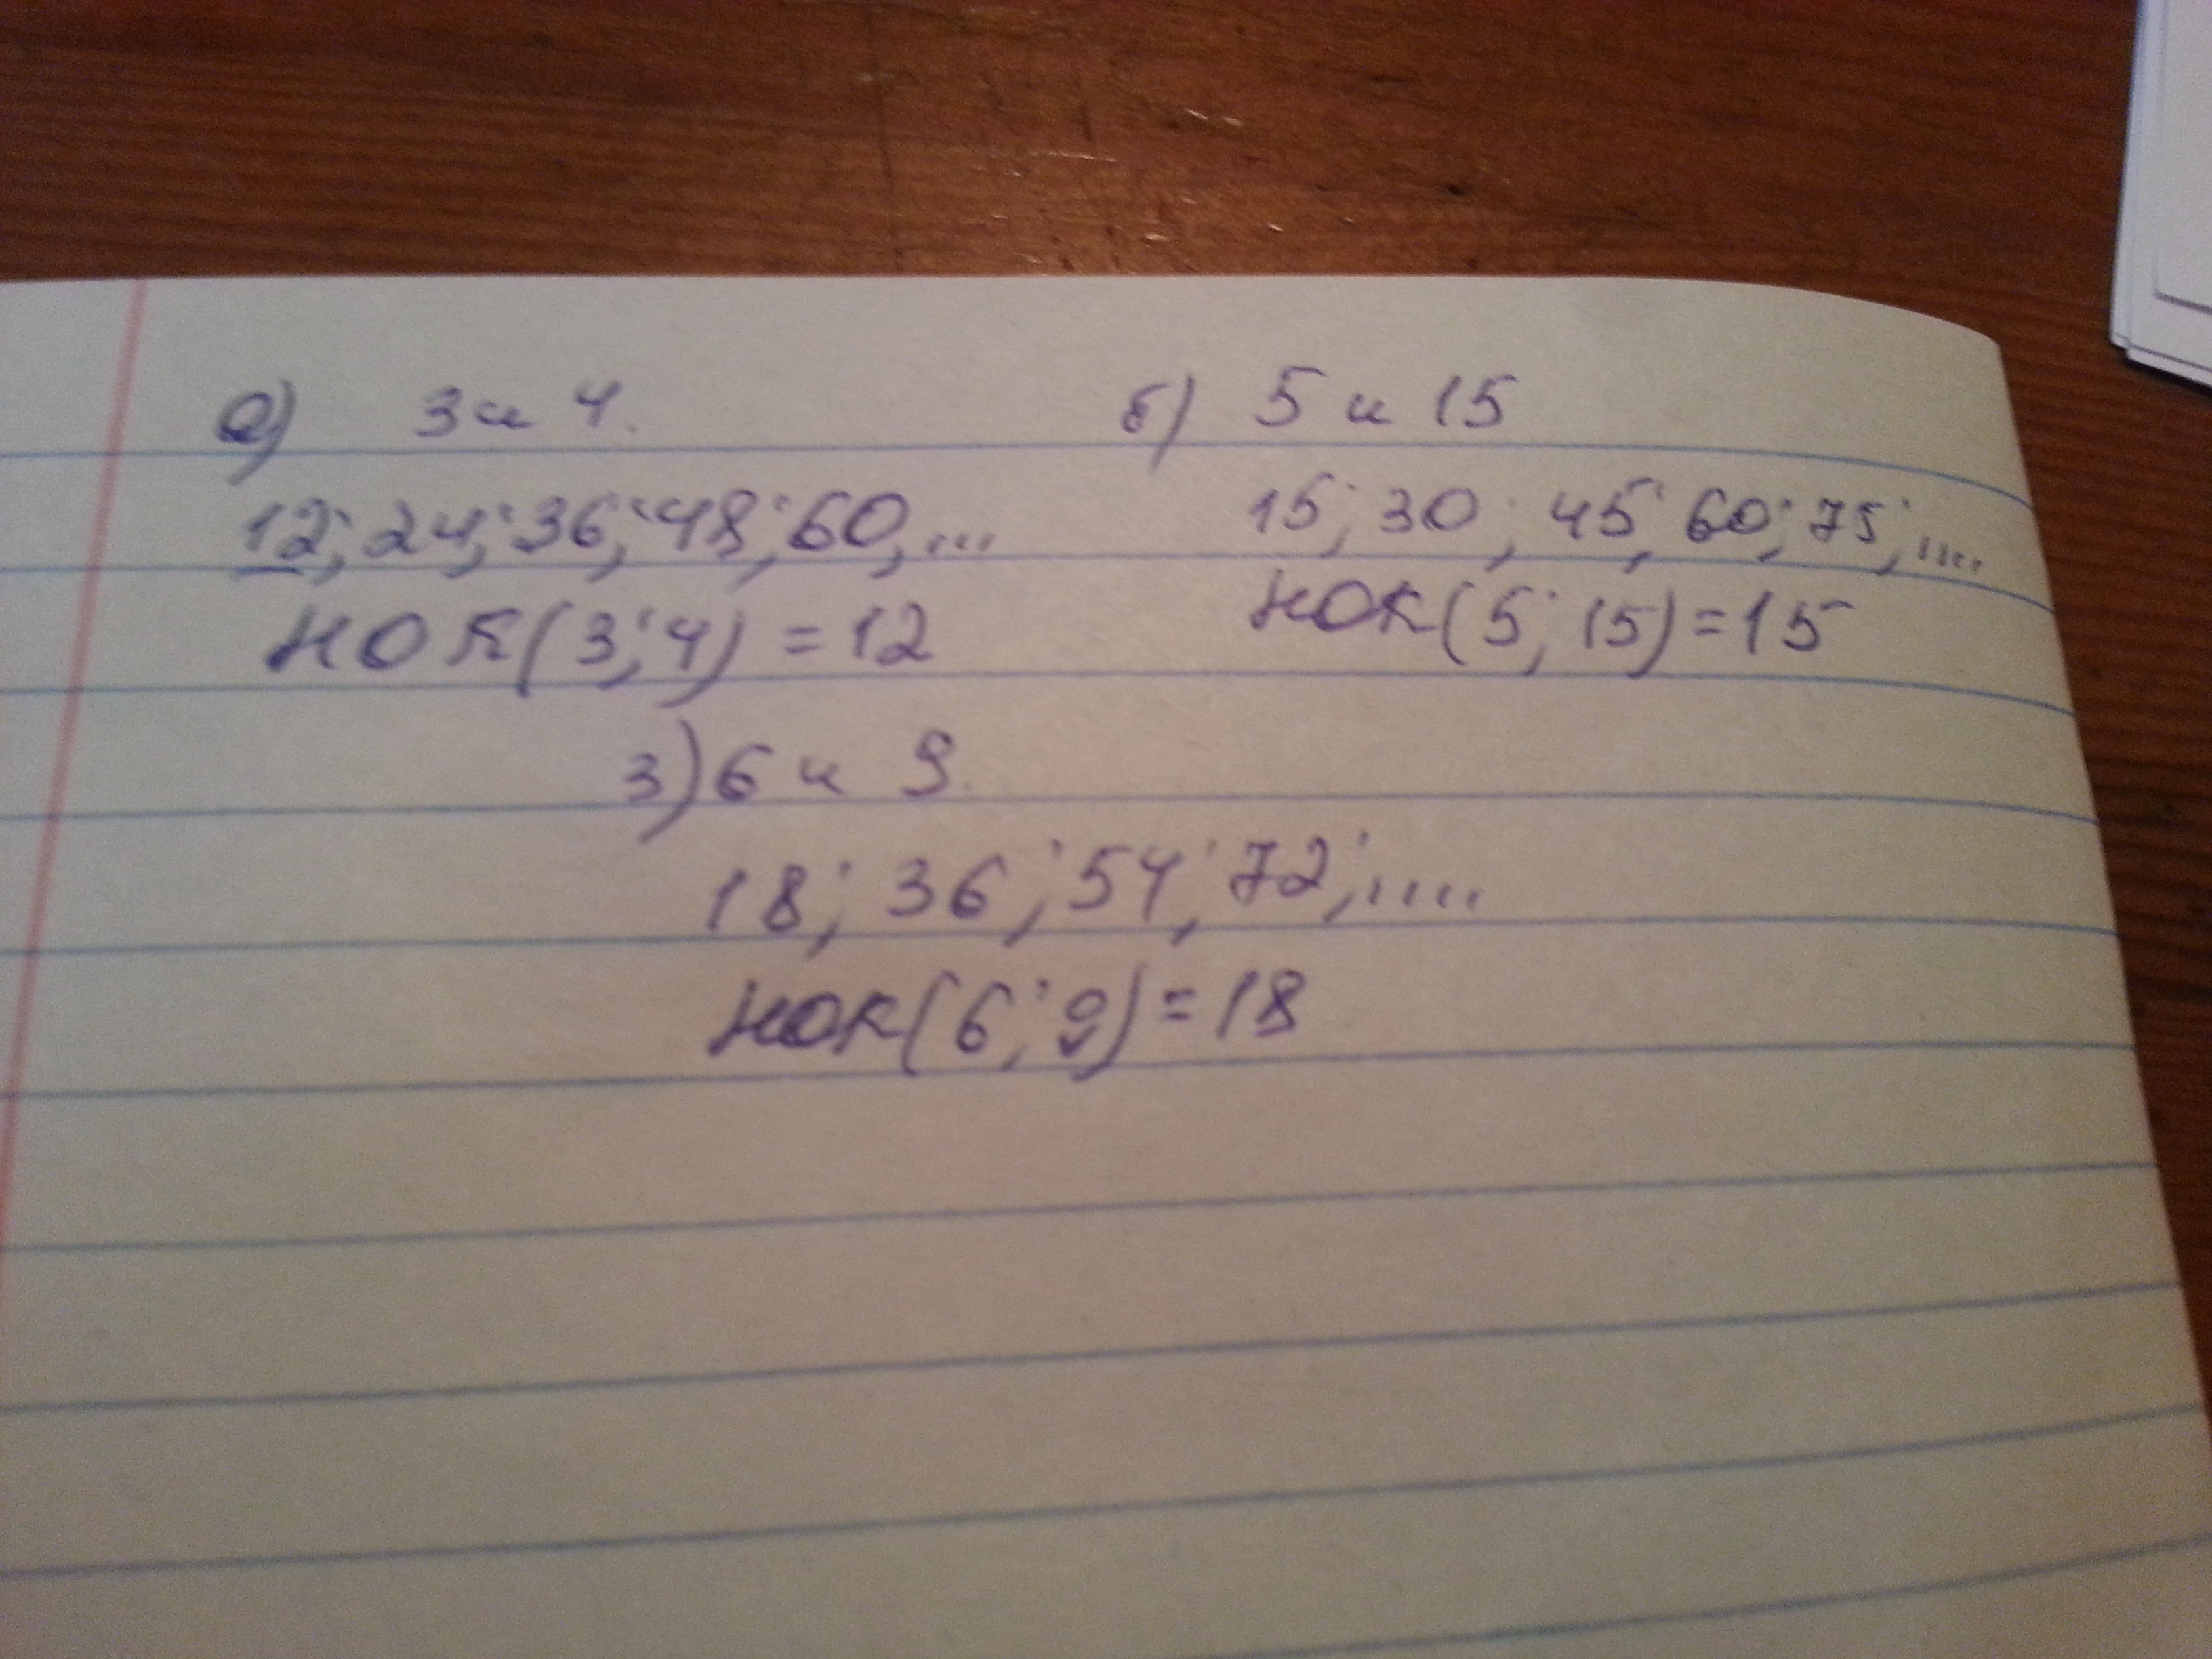 а) 3 и 4.
12; 24; 36; 48; 60, ...
НОК(3; 4) = 12
б) 5 и 15
15; 30; 45; 60; 75; ....
НОК(5; 15) = 15
з) 6 и 9.
18; 36; 54; 72; ....
НОК(6; 9) = 18